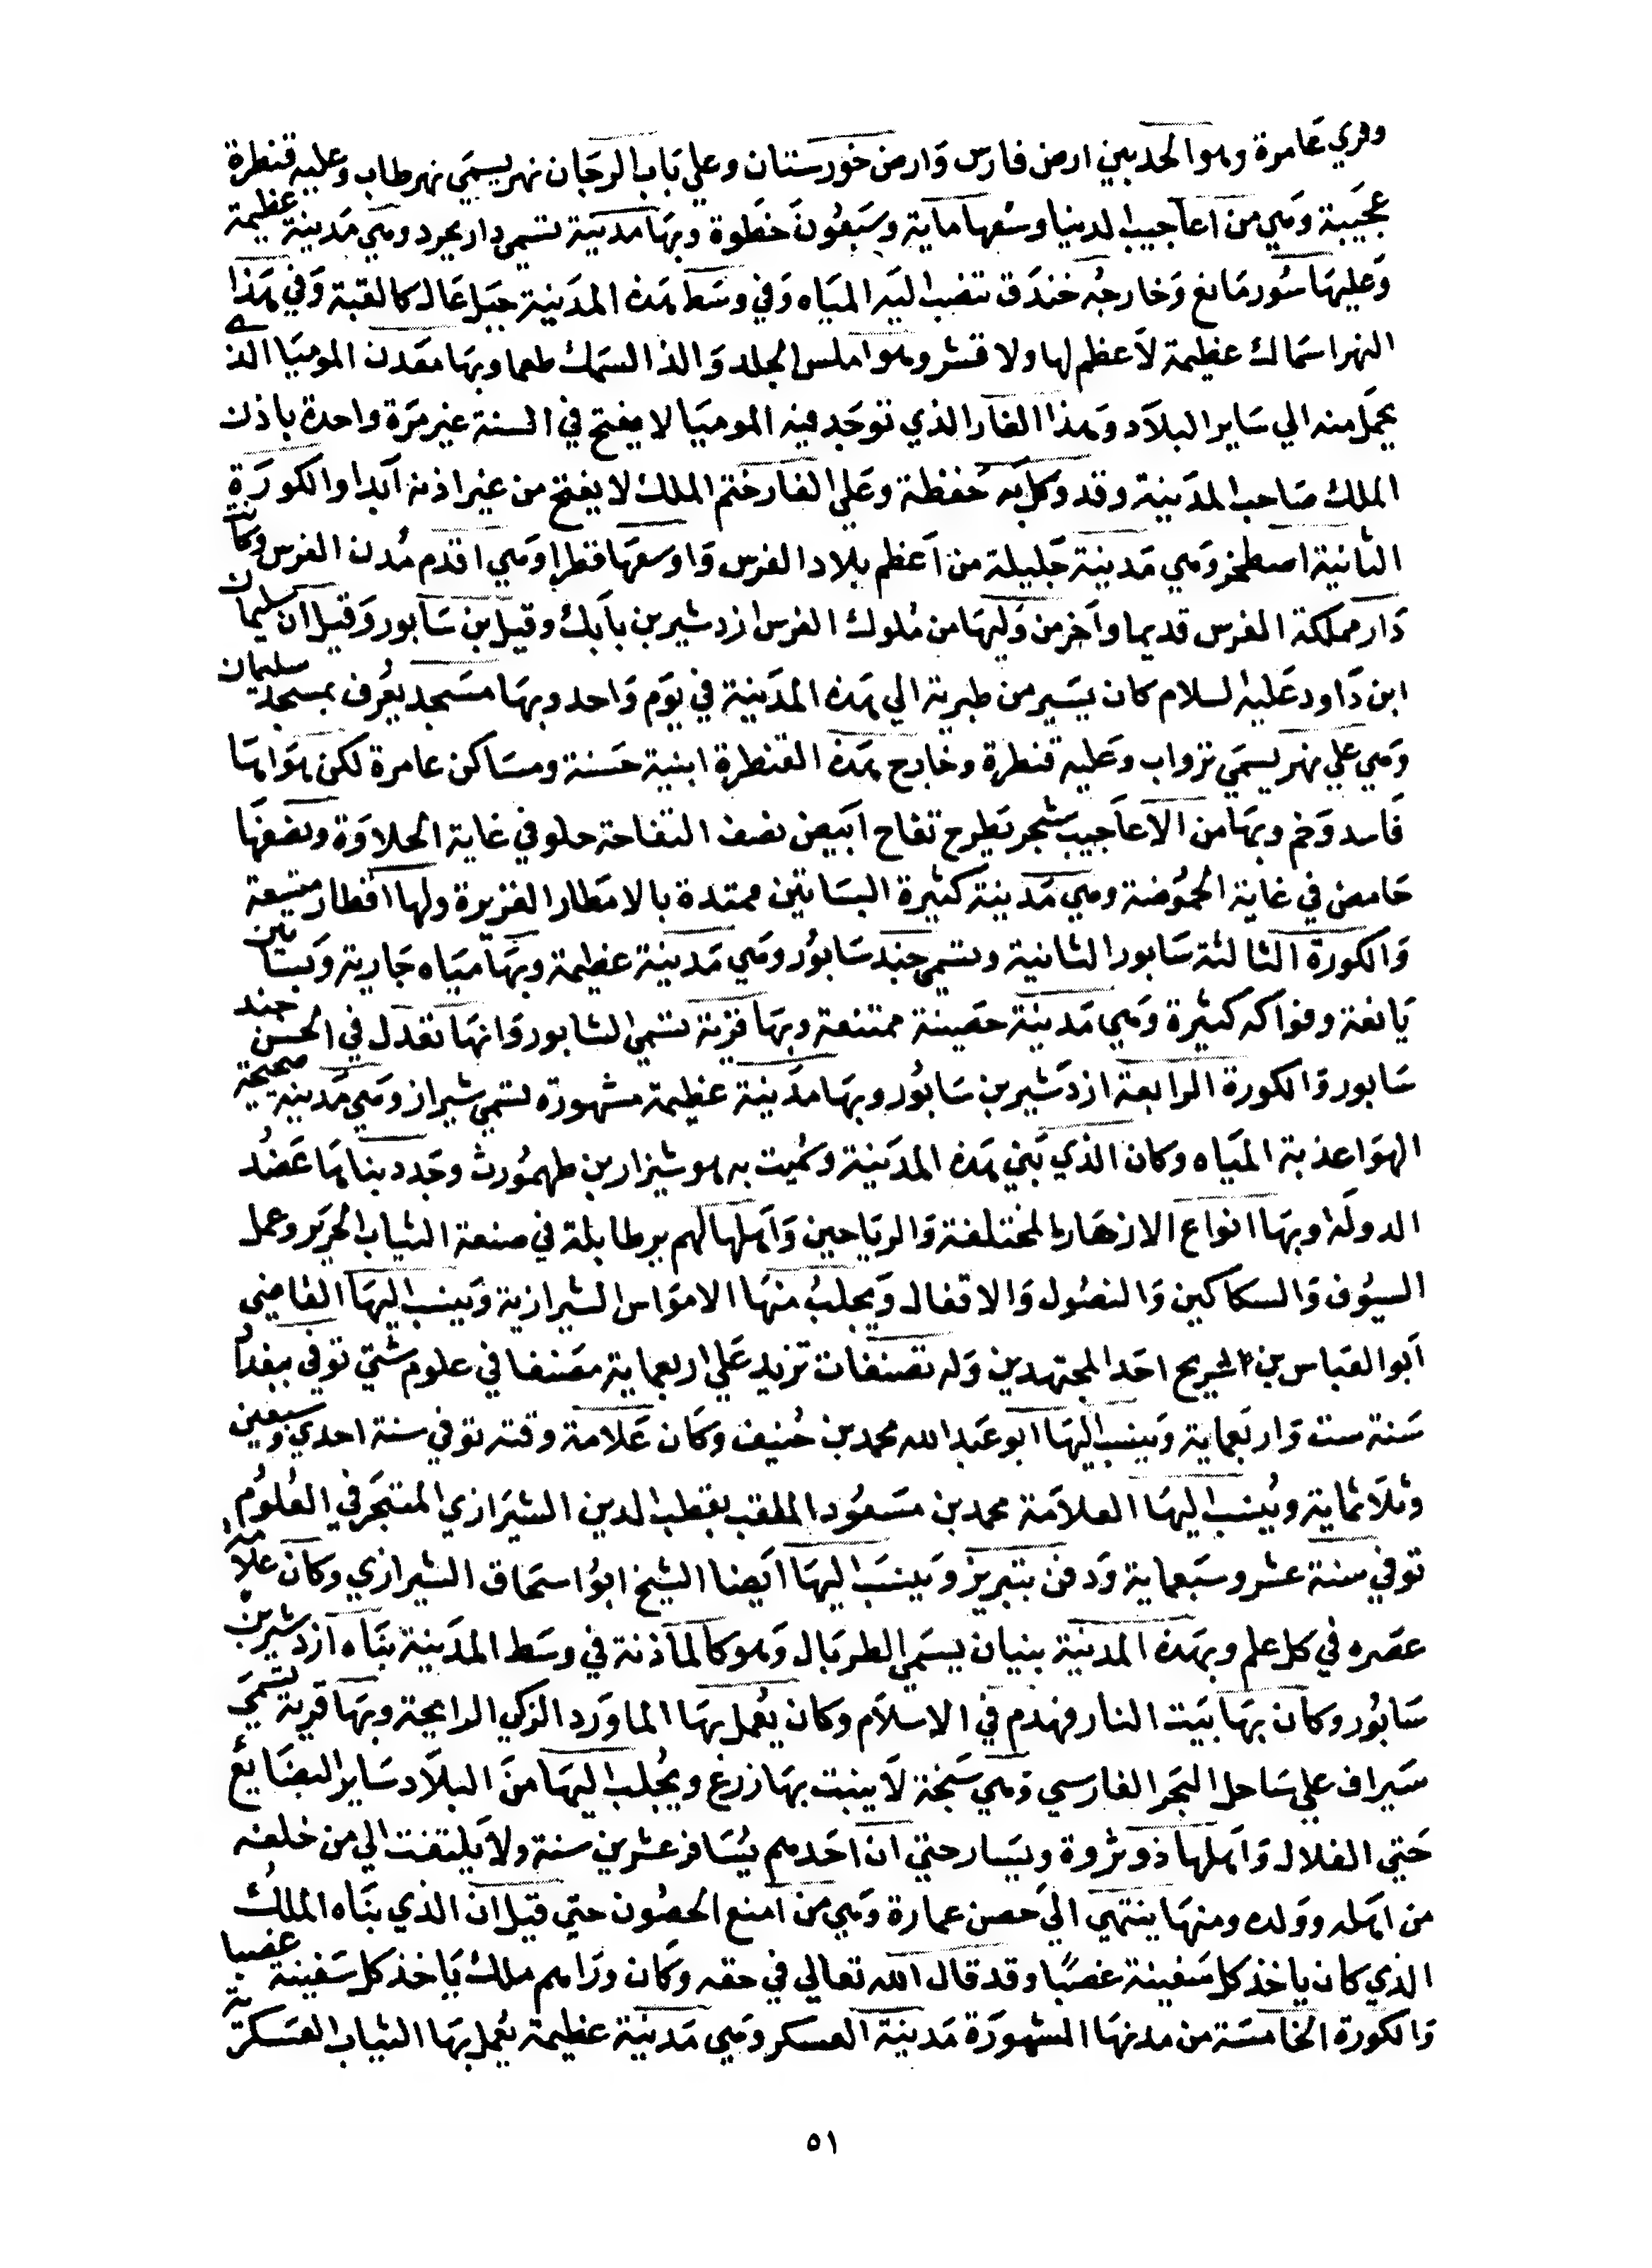 وقري عامرة وهو الحد بين ارض فارس وارض خورستان وعلي باب الرجان نهر يسمي نهر طاب وعليه قنطرة
عجيبة وهي من اعاجيب الدنيا وسعها ماية وسبعون خطوة وبها مدينة تسمي دار بجرد وهي مدينة عظيمة
وعليها سور مانع وخارجه خندق تنصب اليه المياه وفي وسط هذه المدينة جبل عال كالقبة وفي هذا
النهر اسماك عظيمة لا عظم لها ولا قشر وهو املس الجلد والذ السمك طعما وبها معدن الموميا الذي
يحمل منه الي ساير البلاد وهذا الغار الذي توجد فيه الموميا لا يفتح في السنة غير مرة واحدة باذن
الملك صاحب المدينة وقد وكل به حفظة وعلي الغار ختم الملك لا يفتح من غير اذنه آبدا والكورة
الثانية اصطخر وهي مدينة جليلة من اعظم بلاد الفرس واوسعها قطرا وهي اقدم مدن الفرس وكانت
دار مملكة الفرس قديما واخر من وليها من ملوك الفرس ازدشير بن بابك وقيل بن سابور وقيل ان سليمان
ابن داود عليه السلام كان يسير من طبرية الي هذه المدينة في يوم واحد وبها مسجد يعرف بمسجد سليمان
وهي علي نهر يسمي نزواب وعليه قنطرة وخارج هذه القنطرة ابنية حسنة ومساكن عامرة لكن هواها
فاسد وخم وبها من الاعاجيب شجر يطرح تفاح ابيض نصف التفاحة حلو في غاية الحلاوة ونصفها
حامض في غاية الحموضة وهي مدينة كثيرة البساتين ممتدة بالامطار الغزيرة ولها اقطار متسعة
والكورة الثالثة سابور الثانية وتسمي جند سابور وهي مدينة عظيمة وبها مياه جارية وبساتين
يانعة وفواكه كثيرة وهي مدينة حصينة ممتنعة وبها قرية تسمي لشابور وانها تعدل في الحسن جند
سابور والكورة الرابعة ازدشير بن سابور وبها مدينة عظيمة مشهورة تسمي شيراز وهي مدينة صحيحة
الهوا عذبة المياه وكان الذي بني هذه المدينة وسميت به هو شيزار بن طهمورث وجدد بناها عضد
الدولة وبها انواع الازهار المختلفة والرياحين واهلها لهم يد طايلة في صنعة الثياب الحرير وعمل
السيوف والسكاكين والنصول والاقفال ويجلب منها الامواس الشيرازية وينسب اليها القاضي
ابو العباس بن شريح احد المجتهدين وله تصنفات تزيد علي اربعماية مصنفا في علوم شتي توفي ببغداد
سنة ست واربعماية وينسب اليها ابو عبد الله محمد بن خنيف وكان علامة وقته توفي سنة احدي وسبعين
وثلاثماية وينسب اليها العلامة محمد بن مسعود الملقب بقطب الدين الشيرازي المتبحر في العلوم
توفي سنة عشر وسبعماية ودفن بتبريز وينسب اليها ايضا الشيخ ابو اسحاق الشيرازي وكان علامة
عصره في كل علم وبهذه المدينة بنيان يسمي الطربال وهو كالمأذنة في وسط المدينة بناه ازدشير بن
سابور وكان بها بيت النار فهدم في الاسلام وكان يعمل بها الماورد الزكي الرايحة وبها قرية تسمي
سيراف علي ساحل البحر الفارسي وهي سبخة لا ينبت بها زرع ويجلب اليها من البلاد ساير البضايع
حتي الغلال واهلها ذو ثروة ويسار حتي ان احدهم يسافر عشرين سنة ولا يلتفت الي من خلفه
من اهله وولده ومنها ينتهي الي حصن عمارة وهي من امنع الحصون حتي قيل ان الذي بناه الملك
الذي كان ياخذ كل سفينة غصبا وقد قال الله تعالي في حقه وكان وراهم ملك ياخذ كل سفينة غصبا
والكورة الخامسة من مدنها المشهورة مدينة العسكر وهي مدينة عظيمة يعمل بها الثياب العسكرية
٥١